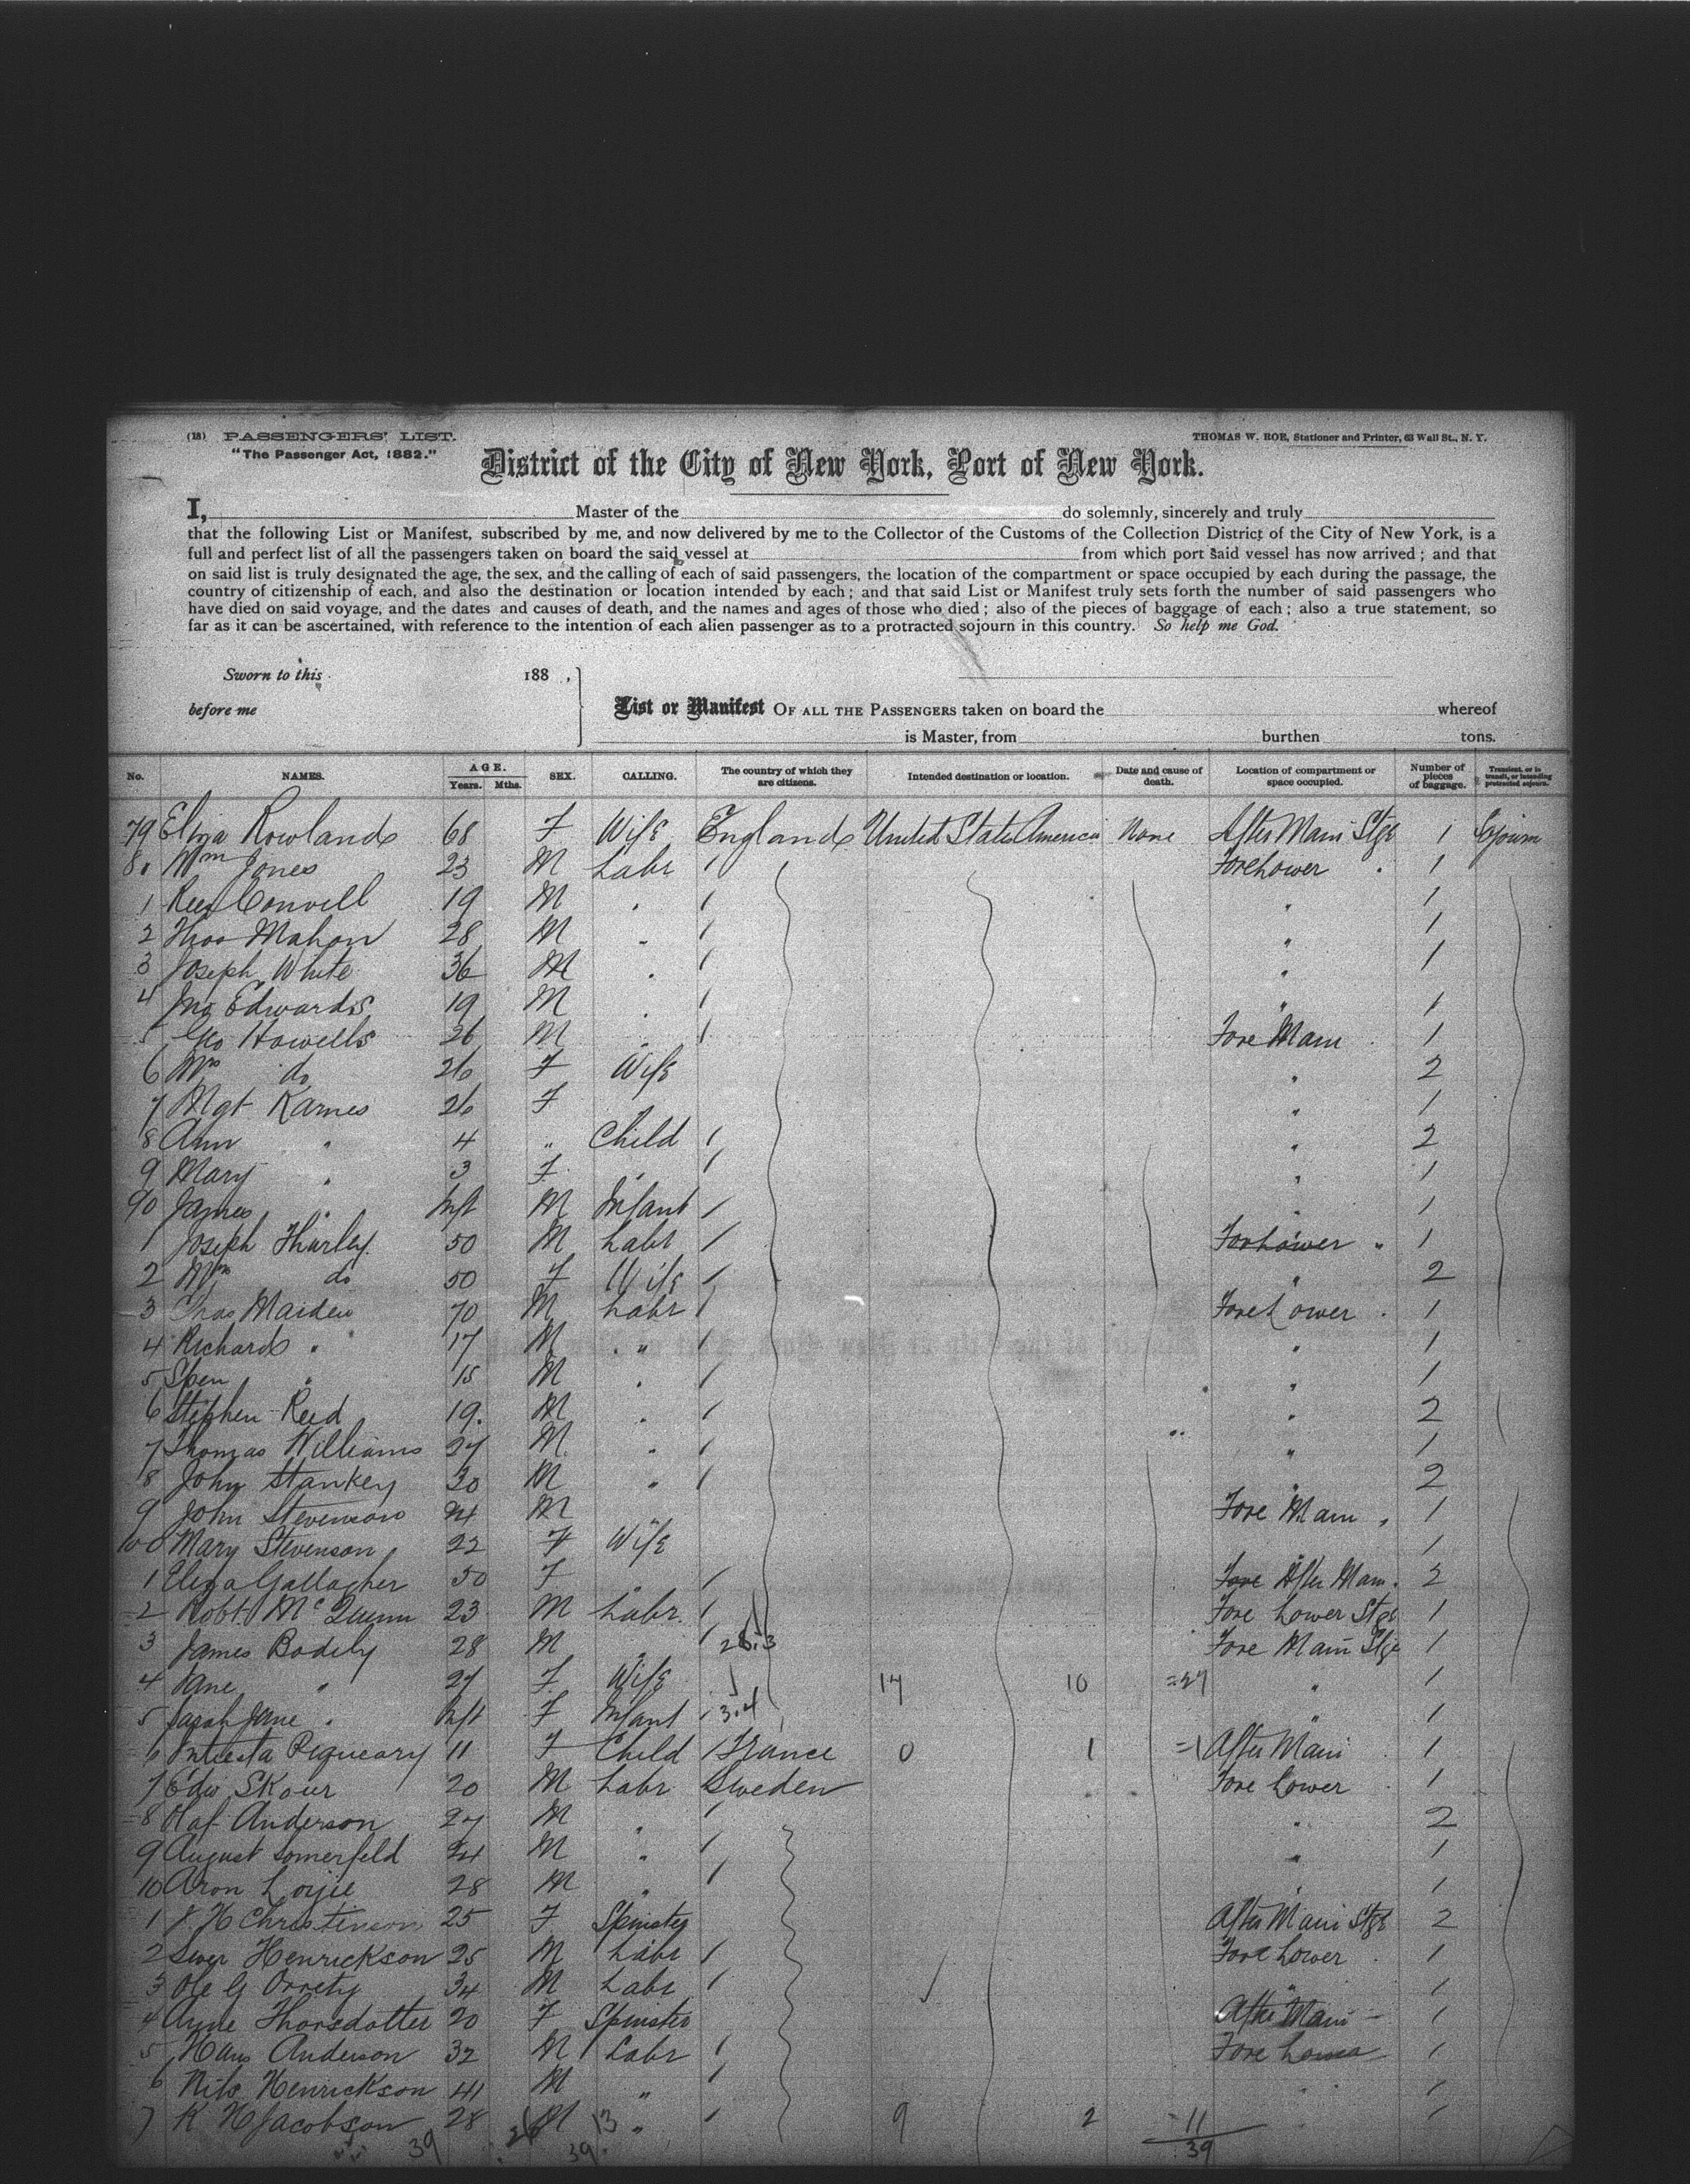 (18) PASSENGERS' LIST.
"The Passenger Act, 1882."
THOMAS W. ROE, Stationer and Printer, 63 Wall St., N. Y.
District of the City of New York, Port of New York.
I, Master of the do solemnly, sincerely and truly
that the following List or Manifest, subscribed by me, and now delivered by me to the Collector of the Customs of the Collection District of the City of New York, is a
full and perfect list of all the passengers taken on board the said vessel at from which port said vessel has now arrived; and that
on said list is truly designated the age, the sex, and the calling of each of said passengers, the location of the compartment or space occupied by each during the passage, the
country of citizenship of each, and also the destination or location intended by each; and that said List or Manifest truly sets forth the number of said passengers who
have died on said voyage, and the dates and causes of death, and the names and ages of those who died; also of the pieces of baggage of each; also a true statement, so
far as it can be ascertained, with reference to the intention of each alien passenger as to a protracted sojourn in this country. So help me God.
Sworn to this 188 ,
before me
List or Manifest OF ALL THE PASSENGERS taken on board the whereof
is Master, from burthen tons.
No. NAMES. AGE. Years. Mths. SEX. CALLING. The country of which they are citizens. Intended destination or location. Date and cause of death. Location of compartment or space occupied. Number of pieces of baggage. Transient, or in transit, or intending protracted sojourn.
79 Eliza Rowlands 68 F Wife England United States America None After Main Stge 1 Sojourn
80 Wm Jones 23 M Labr " Fore Lower " 1
1 Rees Convill 19 M " " " 1
2 Thos Mahon 28 M " " " 1
3 Joseph White 36 M " " " 1
4 Jno Edwards 19 M " " " 1
5 Geo Howells 26 M " " Fore Main " 1
6 Mrs do 26 F Wife " 2
7 Mgt Karnes 26 F " " 1
8 Ann " 4 " Child " " 2
9 Mary " 3 F " " " 1
90 James " Inft M Infant " " 1
1 Joseph Thurley 50 M Labr " Fore Lower " 1
2 Mrs do 50 F Wife " " 2
3 Thos Maiden 70 M Labr " Fore Lower " 1
4 Richard " 17 M " " " 1
5 " 15 M " " " 1
6 Stephen Reed 19 M " " " 2
7 Thomas Williams 27 M " " " 1
8 John Stankey 30 M " " " 2
9 John Stevenson 24 M Fore Main " 1
100 Mary Stevenson 22 F Wife " 1
1 Eliza Gallagher 50 F " Fore After Main " 2
2 Robt McQuinn 23 M Labr " Fore Lower Stge 1
3 James Bodily 28 M " Fore Main Stge 1
4 Jane " 27 F Wife 17 10 =27 " 1
5 Sarah Jane " Inft F Infant " 3.4 " 1
6 11 F Child France 0 1 =1 After Main 1
7 Edw Skour 20 M Labr Sweden Fore Lower 1
8 Olaf Anderson 27 M " " " 2
9 August Somerfeld 24 M " " " 1
10 Aron 28 M " " " 1
1 Christinson 25 F Spinster After Main Stge 2
2 Henrickson 25 M Labr " Fore Lower " 1
3 Ole G 34 M Labr " " 1
4 Anne Thorsdotter 20 F Spinster After Main 1
5 Hans Anderson 32 M Labr " Fore Lower 1
6 Nils Henrickson 41 M " " " 1
7 K H Jacobson 28 M " " 9 2 =11 1
39 26 13 39 39